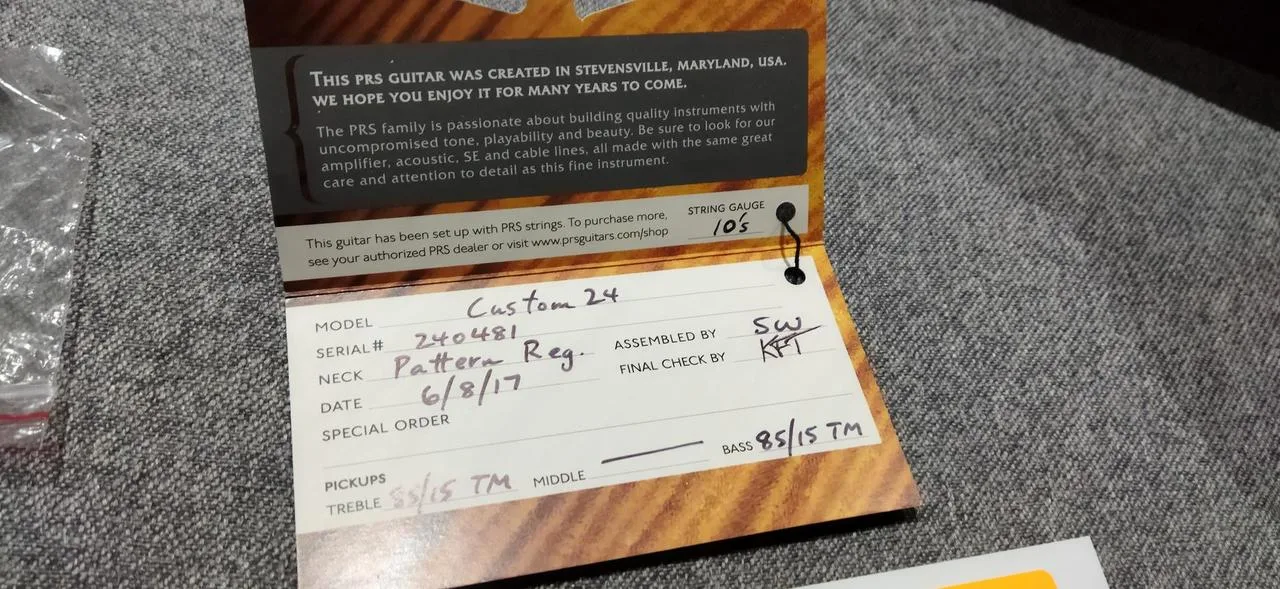 THIS PRS GUITAR WAS CREATED IN STEVENSVILLE, MARYLAND, USA.
WE HOPE YOU ENJOY IT FOR MANY YEARS TO COME.
The PRS family is passionate about building quality instruments with
uncompromised tone, playability and beauty. Be sure to look for our
amplifier, acoustic, SE and cable lines, all made with the same great
care and attention to detail as this fine instrument.
This guitar has been set up with PRS strings. To purchase more,
see your authorized PRS dealer or visit www.prsguitars.com/shop
STRING GAUGE
10's
MODEL Custom 24
SERIAL# 240481
NECK Pattern Reg.
DATE 6/8/17
ASSEMBLED BY SW
FINAL CHECK BY
SPECIAL ORDER
PICKUPS
TREBLE 85/15 TM MIDDLE BASS 85/15 TM